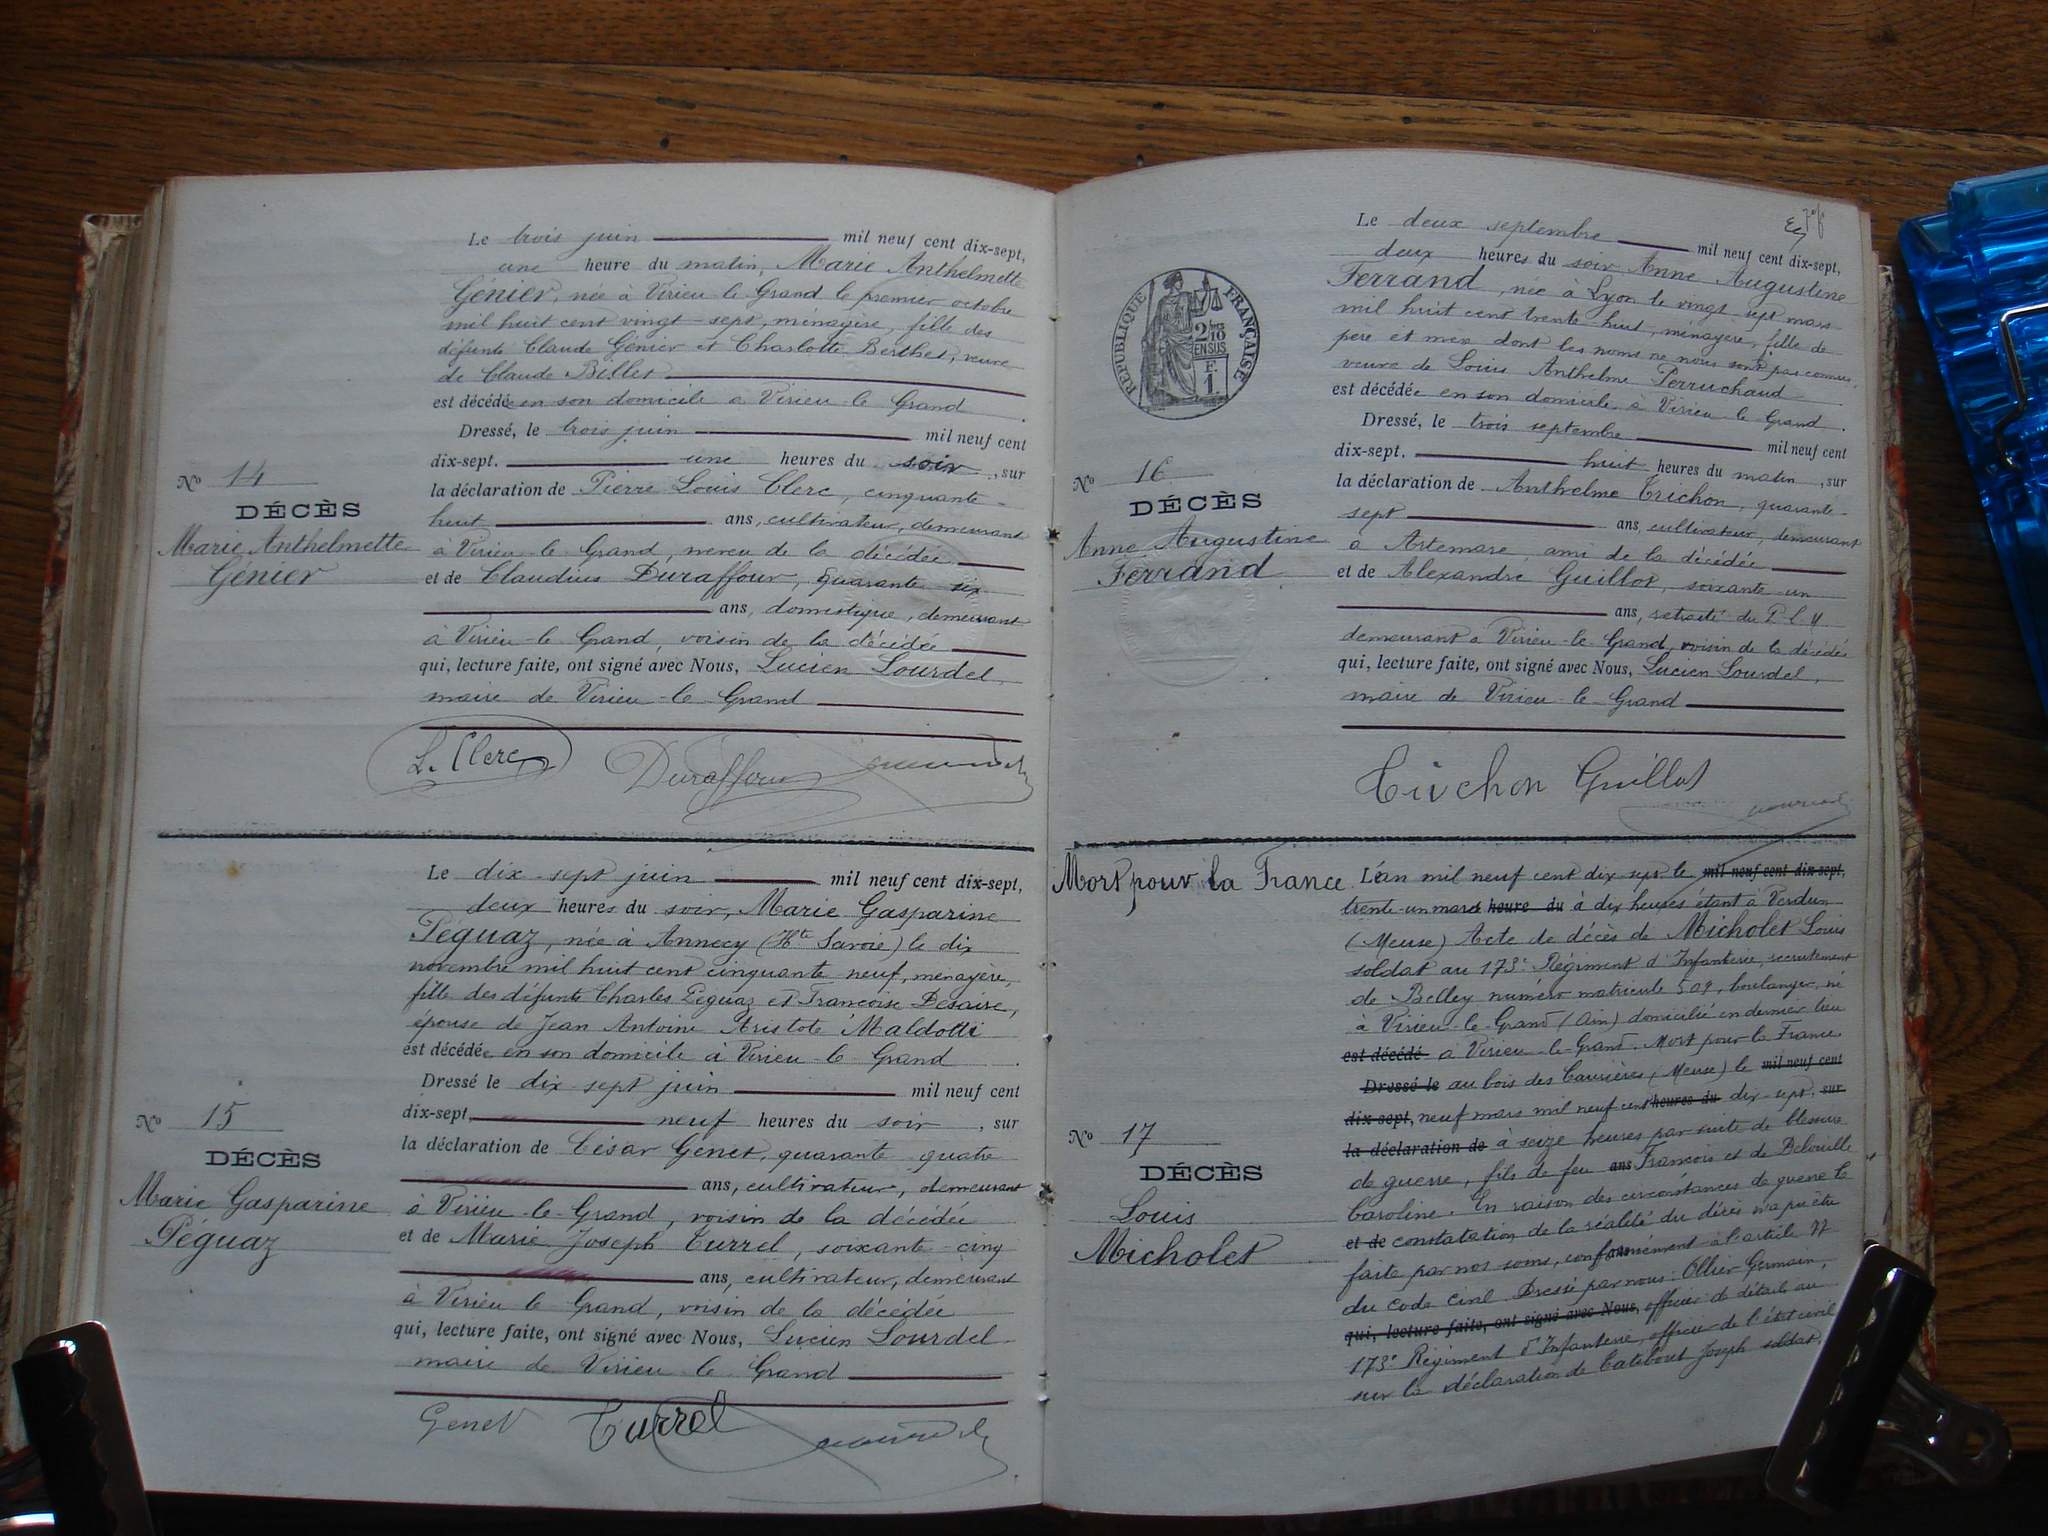 Le trois juin mil neuf cent dix-sept,
une heure du matin, Marie Anthelmette
Génier, née à Virieu le Grand le premier octobre
mil huit cent vingt-sept, ménagère, fille des
défunts Claude Génier et Charlotte Berthet, veuve
de Claude Billet
est décédée en son domicile à Virieu-le-Grand
Dressé, le trois juin mil neuf cent
dix-sept. une heures du soir, sur
la déclaration de Pierre Louis Clerc, cinquante-
huit ans, cultivateur, demeurant
à Virieu-le-Grand, neveu de la décédée
et de Claudius Duraffour, quarante six
ans, domestique, demeurant
à Virieu-le-Grand, voisin de la décédée
qui, lecture faite, ont signé avec Nous, Lucien Lourdel,
maire de Virieu-le-Grand
No 14
DÉCÈS
Marie Anthelmette
Génier
L. Clerc Duraffour
Le dix-sept juin mil neuf cent dix-sept,
deux heures du soir, Marie Gasparine
Péguaz, née à Annecy (Hte Savoie) le dix
novembre mil huit cent cinquante neuf, ménagère,
fille des défunts Charles Péguaz et Françoise Desaire,
épouse de Jean Antoine Aristote Maldotti
est décédée en son domicile à Virieu-le-Grand
Dressé le dix-sept juin mil neuf cent
dix-sept, neuf heures du soir, sur
la déclaration de César Genet, quarante quatre
ans, cultivateur, demeurant
à Virieu-le-Grand, voisin de la décédée
et de Marie Joseph Turrel, soixante-cinq
ans, cultivateur, demeurant
à Virieu le Grand, voisin de la décédée
qui, lecture faite, ont signé avec Nous, Lucien Lourdel
maire de Virieu-le-Grand
No 15
DÉCÈS
Marie Gasparine
Péguaz
Genet Turrel
Le deux septembre mil neuf cent dix-sept,
deux heures du soir Anne Augustine
Ferrand, née à Lyon le vingt-sept mars
mil huit cent trente-huit, ménagère, fille de
père et mère dont les noms ne nous sont pas connus,
veuve de Louis Anthelme Perruchaud
est décédée en son domicile à Virieu-le-Grand.
Dressé, le trois septembre mil neuf cent
dix-sept. huit heures du matin, sur
la déclaration de Anthelme Trichon, quarante-
sept ans, cultivateur, demeurant
à Artemare, ami de la décédée
et de Alexandre Guillot, soixante-un
ans, retraité du P.L.M
demeurant à Virieu-le-Grand, voisin de la décédée
qui, lecture faite, ont signé avec Nous, Lucien Lourdel,
maire de Virieu-le-Grand
RÉPUBLIQUE FRANÇAISE
2/10
EN SUS
F.
1
No 16
DÉCÈS
Anne Augustine
Ferrand
Trichon Guillot
Mort pour la France
L'an mil neuf cent dix sept le mil neuf cent dix-sept,
trente-un mars heure du à dix heures étant à Verdun
(Meuse) Acte de décès de Micholet Louis
soldat au 173e Régiment d'Infanterie, recrutement
de Belley numéro matricule 509, boulanger, né
à Virieu-le-Grand (Ain) domicilié en dernier lieu
est décédé à Virieu-le-Grand. Mort pour la France
Dressé le au bois des Caurières (Meuse) le mil neuf cent
dix-sept, neuf mars mil neuf cent heures du dix-sept, sur
la déclaration de à seize heures par suite de blessures
de guerre, fils de feu ans François et de
Caroline. En raison des circonstances de guerre le
et de constatation de la réalité du décès n'a pu être
faite par nos soins, conformément à l'article 77
du code civil. Dressé par nous: Ollier Germain,
qui, lecture faite, ont signé avec Nous, officier de détails au
173e Régiment d'Infanterie, officier de l'état civil
sur la déclaration de Joseph soldat,
No 17
DÉCÈS
Louis
Micholet